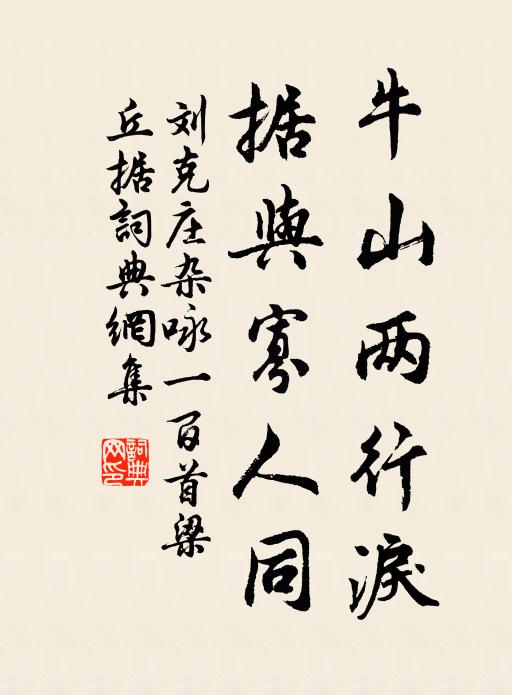 牛山两行淚
据與寡人同
刘克庄杂咏一百首梁
丘据詞典網集
詞典网印